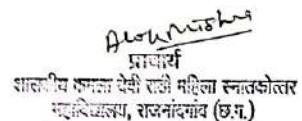 Alok Mishra
प्राचार्य
शासकीय कमला देवी राठी महिला स्नातकोत्तर
महाविद्यालय, राजनांदगांव (छ.ग.)